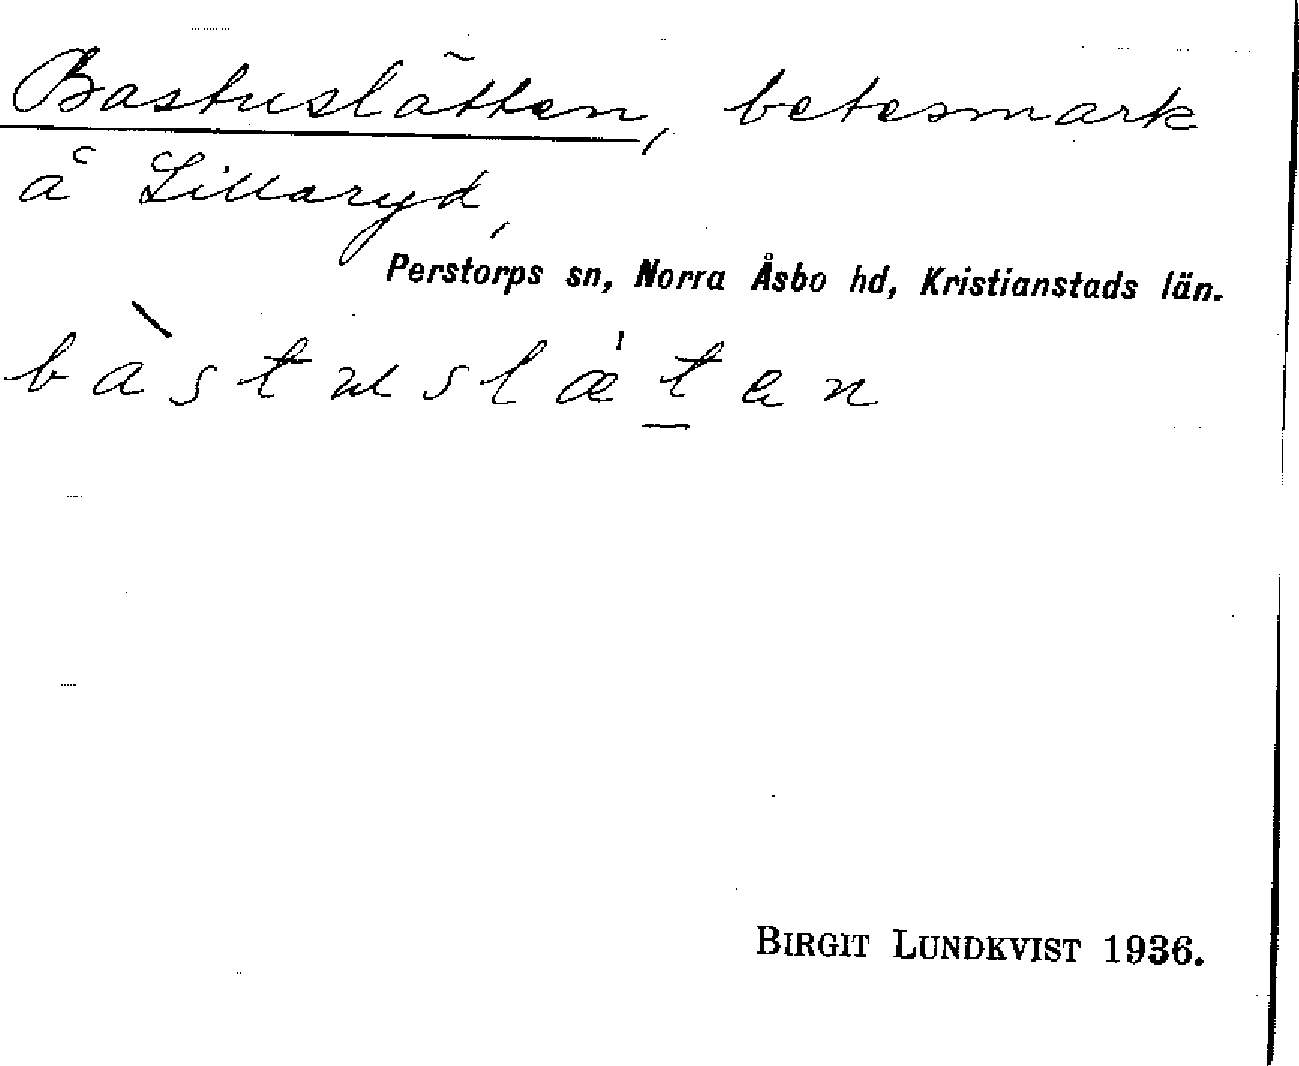 Bastuslätten, betesmark
å Lillaryd,
Perstorps sn, Norra Åsbo hd, Kristianstads län.
bàstuslæ̍t̲en
BIRGIT LUNDKVIST 1936.